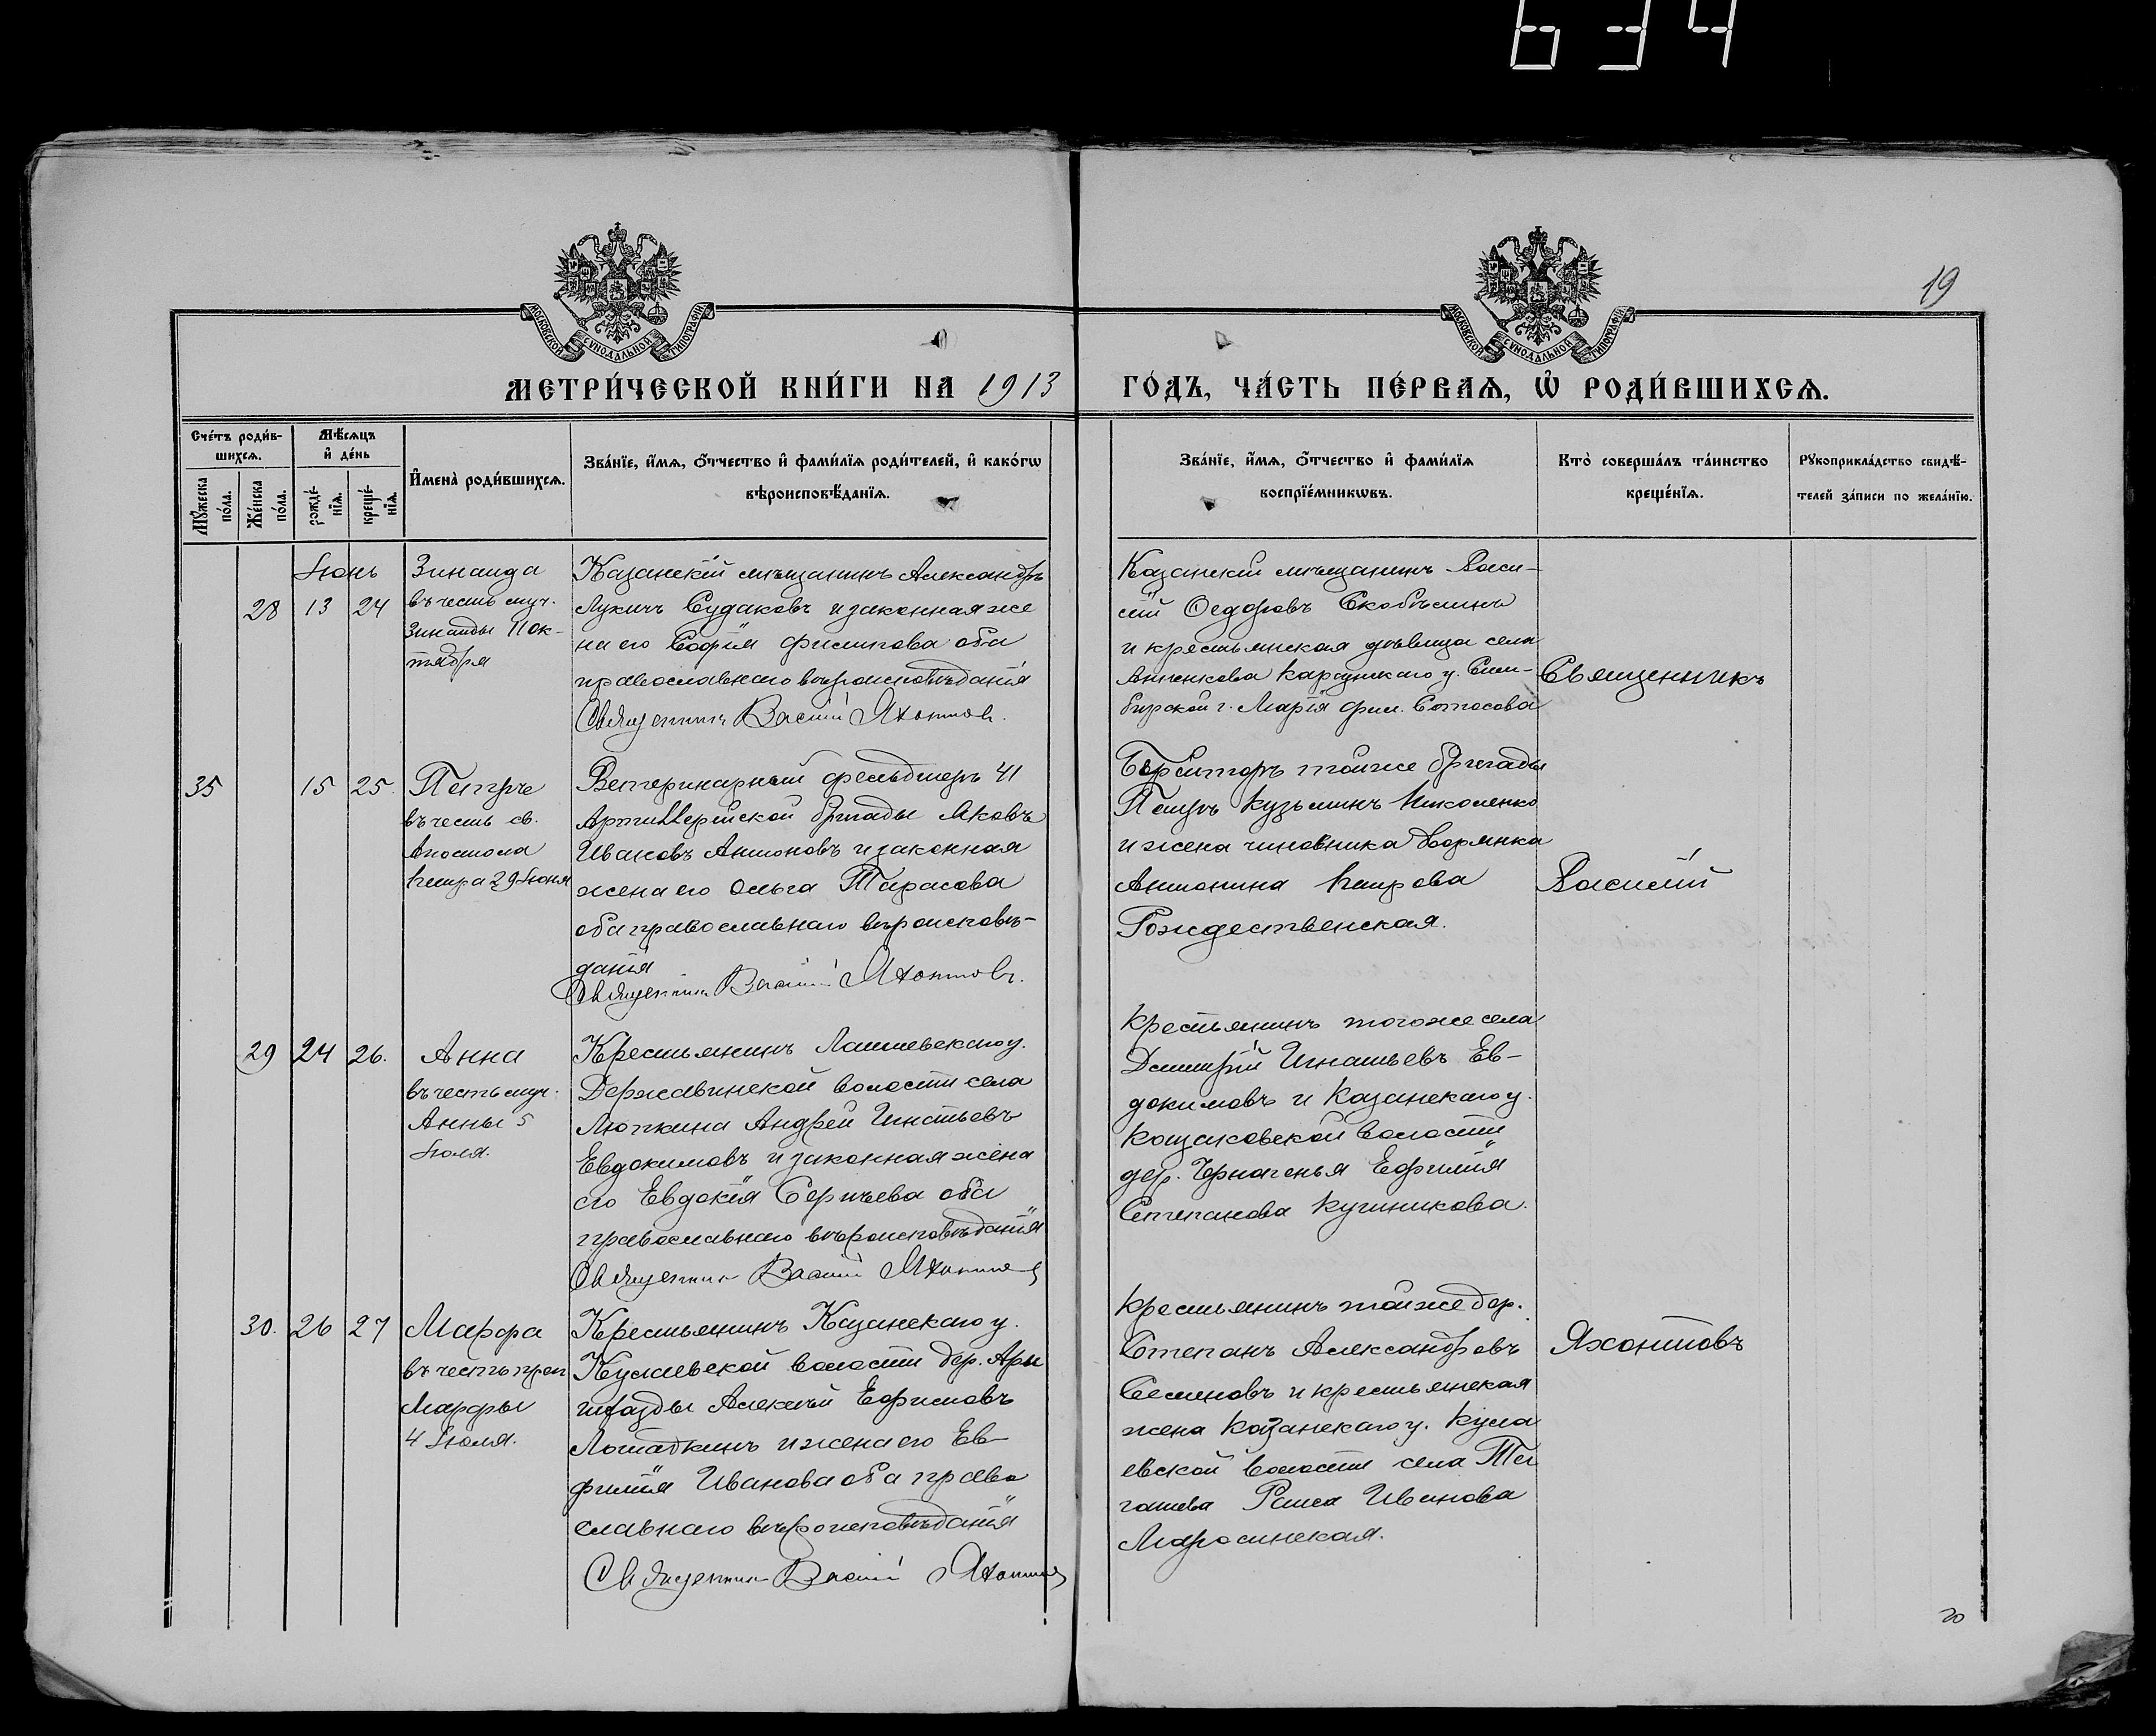 634
19
МОСКОВСКОЙ СУНОДАЛЬНОЙ ТИПОГРАФІИ
МОСКОВСКОЙ СУНОДАЛЬНОЙ ТИПОГРАФІИ
МЕТРИ́ЧЕСКОЙ КНИ́ГИ НА 1913 ГО́ДЪ, ЧА́СТЬ ПЕ́РВАѦ, Ѿ РОДИ́ВШИХСѦ.
Сче́тъ роди́в-
шихсѧ.
Мѣ́сѧцъ
и҆ де́нь
Мꙋ́жеска
по́ла.
Же́нска
по́ла.
рожде́-
нїѧ.
креще́-
нїѧ.
И҆мена̀ роди́вшихсѧ.
Зва́нїе, и҆́мѧ, ѻ҆́тчество и҆ фамı́лїѧ роди́телей, и҆ како́гѡ
вѣроисповѣ́данїѧ.
Зва́нїе, и҆́мѧ, ѻ҆́тчество и҆ фамı́лїѧ
воспрїе́мникѡвъ.
Кто̀ соверша́лъ та́инство
креще́нїѧ.
Рꙋкоприкла́дство свидѣ́-
телей за́писи по жела́нїю.
Іюнь
28 13 24
Зинаида
въ честь муч.
Зинаиды 11 ок-
тября
Казанскій мѣщанинъ Александръ
Лукичъ Судаковъ и законная же
на его Софія Филипова оба
православнаго вѣроисповѣданія
Священникъ Василій Яхонтовъ.
Казанскій мѣщанинъ Васи-
лій Ѳедоровъ Скобѣлинъ
и крестьянская дѣвица села
Анненкова Карсунскаго у. Сим-
бирской г. Марія Фил. Стосова
35 15 25.
Петръ
въ честь св.
Апостола
Петра 29 Іюня
Ветеринарный фельдшеръ 41
Артиллерійской бригады Яковъ
Ивановъ Антоновъ и законная
жена его Ольга Тарасова
оба православнаго вѣроисповѣ-
данія
Священникъ Василій Яхонтовъ.
Берейторъ тойже бригады
Петръ Кузьминъ Николенко
и жена чиновника дворянка
Антонина Петрова
Рождественская.
29 24 26.
Анна
въ честь муч.
Анны 5
Іюля.
Крестьянинъ Лаишевскаго у.
Державинской волости села
Люткина Андрей Игнатьевъ
Евдокимовъ и законная жена
его Евдокія Сергѣева оба
православнаго вѣроисповѣданія
Священникъ Василій Яхонтовъ
Крестьянинъ тогоже села
Димитрій Игнатьевъ Ев-
докимовъ и Казанскаго у.
Кощаковской волости
дер. Чернагенья Ефимія
Степанова Кушникова.
30. 26 27
Марфа
въ честь преп
Марфы
4 Іюля.
Крестьянинъ Казанскаго у.
Кулаевской волости дер. Ары
шхазды Алексѣй Ефимовъ
Лошадкинъ и жена его Ев-
фимія Иванова оба право
славнаго вѣроисповѣданія
Священникъ Василій Яхонтовъ
Крестьянинъ тойже дер.
Степанъ Александровъ
Семеновъ и крестьянская
жена Казанскаго у. Кула
евской волости села Те
гашева Раиса Иванова
Маросинская.
Священникъ
Василій
Яхонтовъ
20